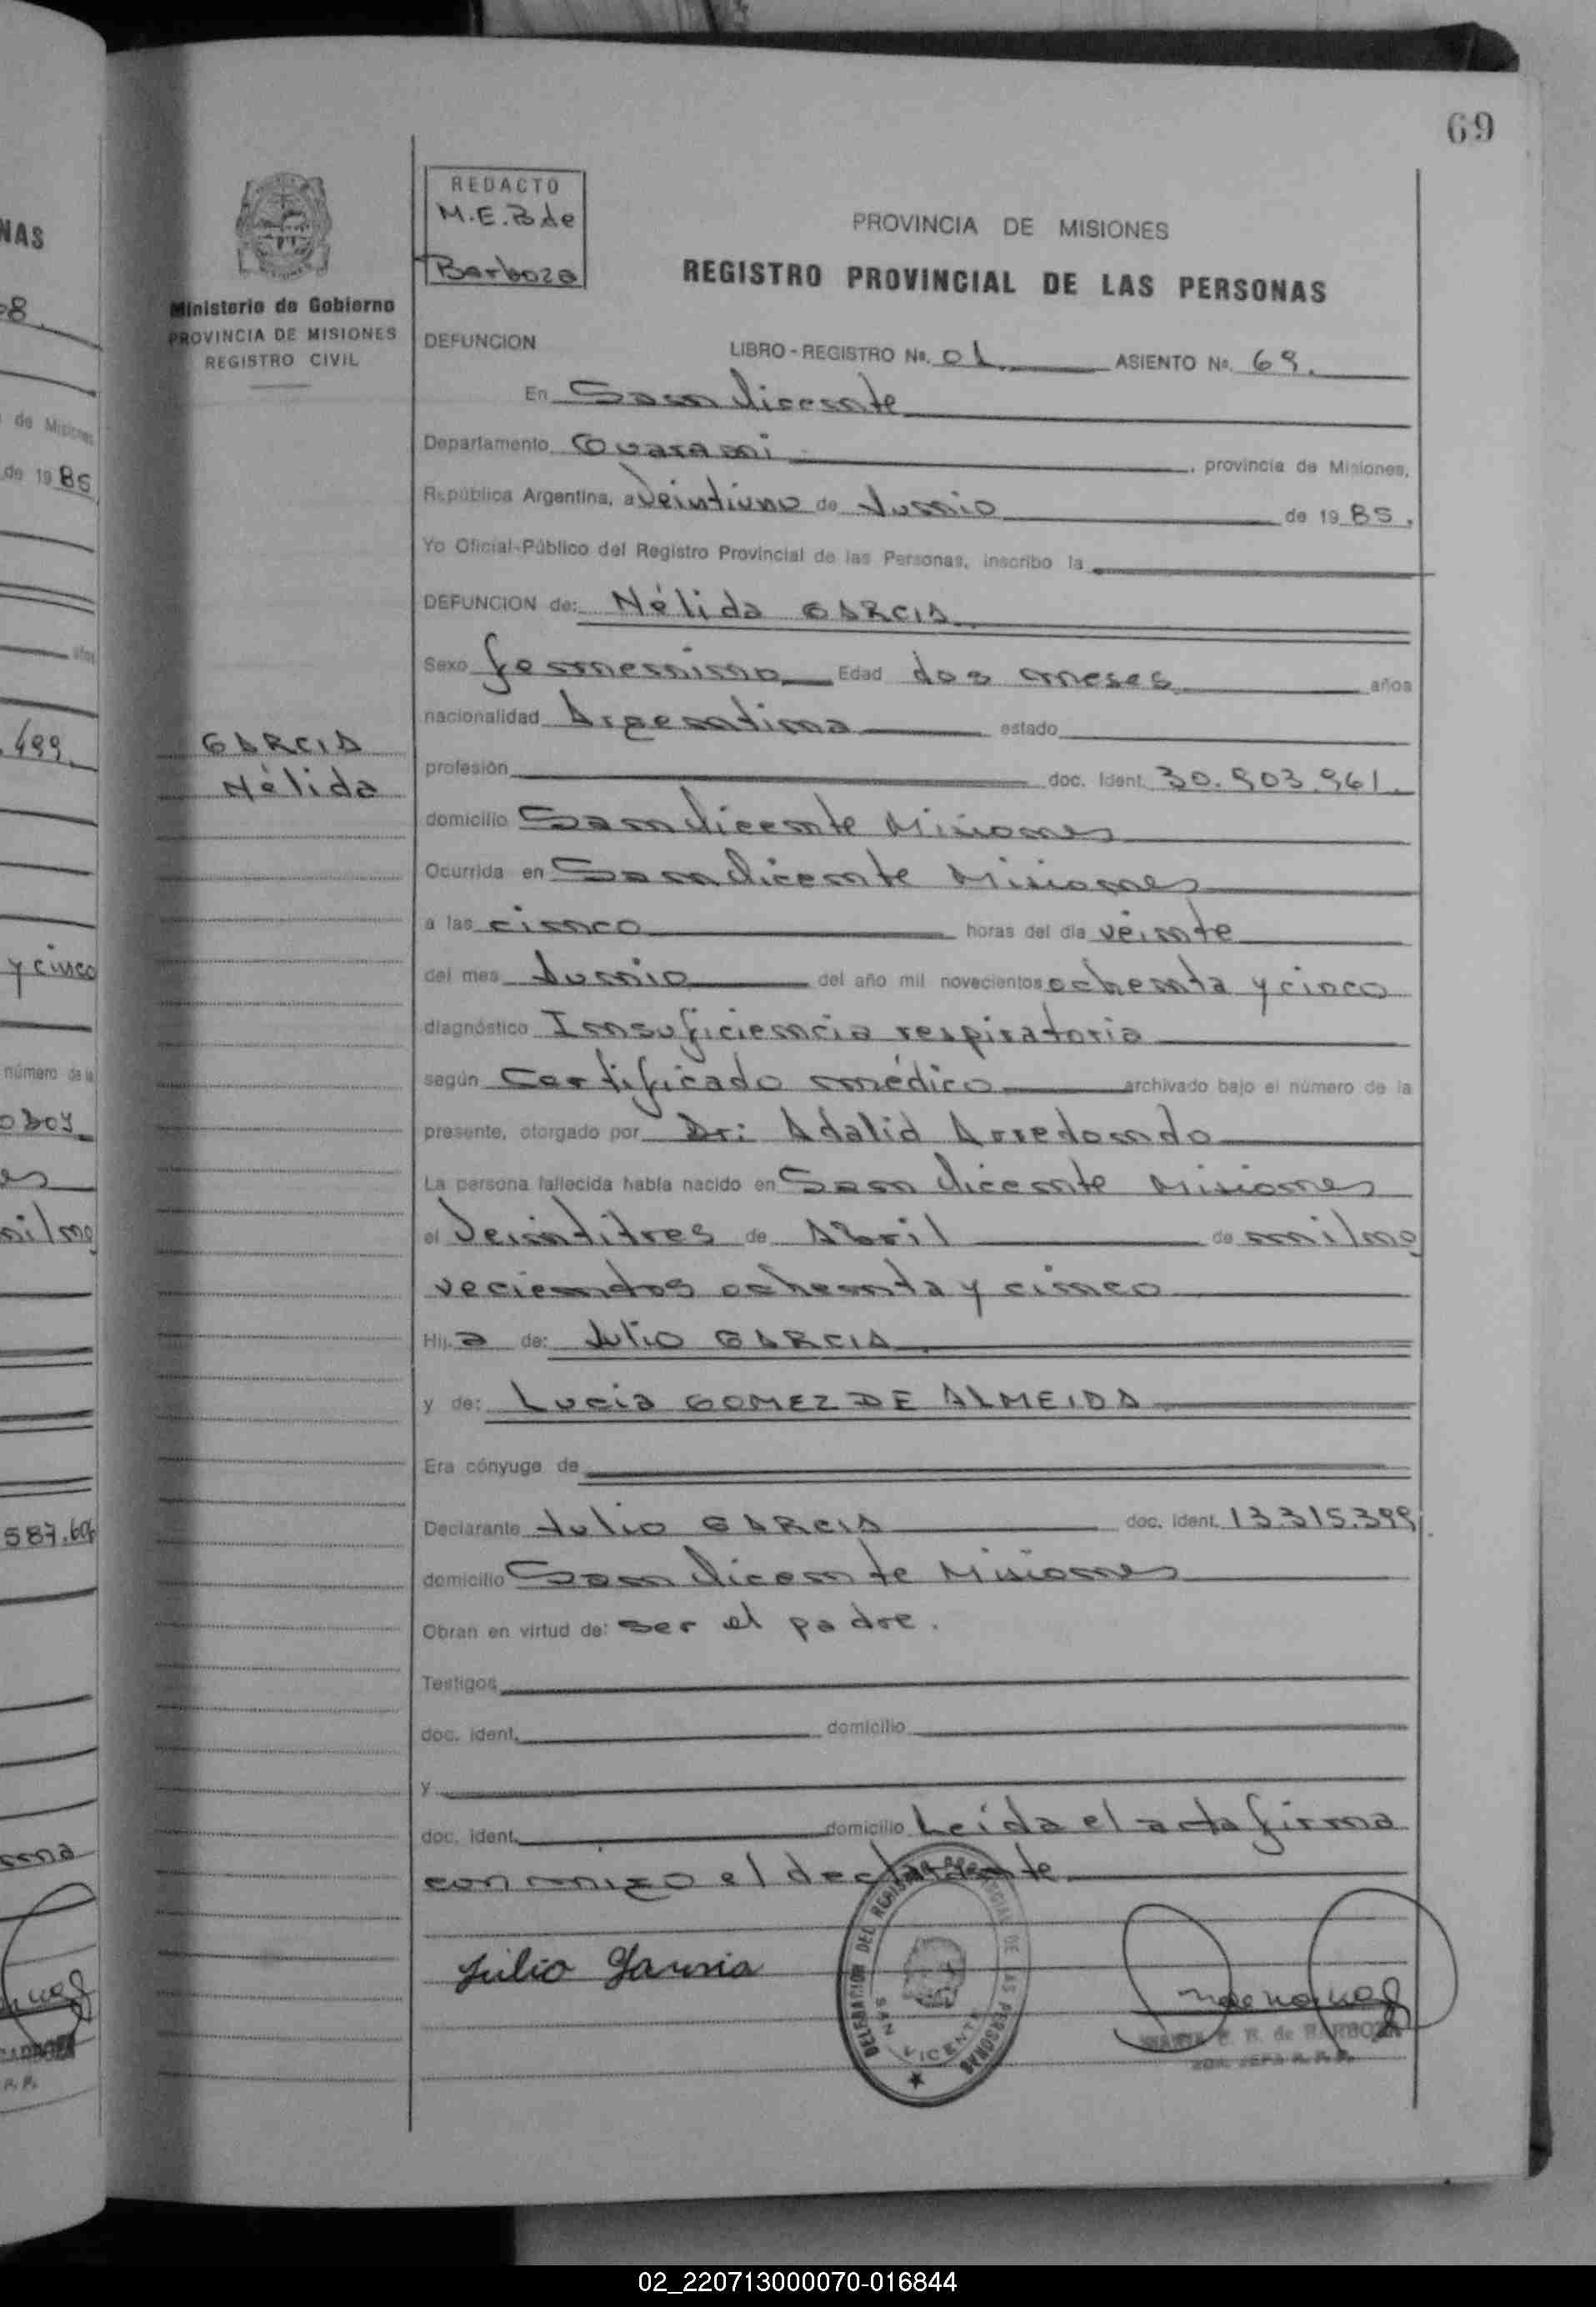 69
NAS
8
de Misiones
de 1985
años
.499.
y cinco
número de la
es
mil no
587.60
REDACTO
M.E.B de
Barboza
Ministerio de Gobierno
PROVINCIA DE MISIONES
REGISTRO CIVIL
GARCIA
Nélida
PROVINCIA DE MISIONES
REGISTRO PROVINCIAL DE LAS PERSONAS
DEFUNCION LIBRO-REGISTRO No. 01. ASIENTO No. 69.
En San Vicente
Departamento Guarani, provincia de Misiones,
República Argentina, a Veintiuno de Junio de 1985.
Yo Oficial-Público del Registro Provincial de las Personas, inscribo la
DEFUNCION de: Nélida GARCIA
Sexo femenino Edad dos meses años
nacionalidad Argentina estado
profesión doc. Ident. 30.903.961.
domicilio San Vicente Misiones
Ocurrida en San Vicente Misiones
a las cinco horas del día veinte
del mes Junio del año mil novecientos ochenta y cinco
diagnóstico Insuficiencia respiratoria
según Certificado médico archivado bajo el número de la
presente, otorgado por Dr: Adalid Arredondo
La persona fallecida había nacido en San Vicente Misiones
el Veintitres de Abril de mil no
vecientos ochenta y cinco
Hij.a de: Julio GARCIA
y de: Lucia GOMEZ DE ALMEIDA
Era cónyuge de
Declarante Julio GARCIA doc. ident. 13.315.399
domicilio San Vicente Misiones
Obran en virtud de: ser el padre.
Testigos
doc. ident. domicilio
y
doc. ident. domicilio Leída el acta firma
conmigo el declarante
Julio Garsia
DELEGACION DEL REGISTRO PROVINCIAL DE LAS PERSONAS
SAN VICENTE
MARIA E. B. de BARBOZA
R. P. P.
02_220713000070-016844